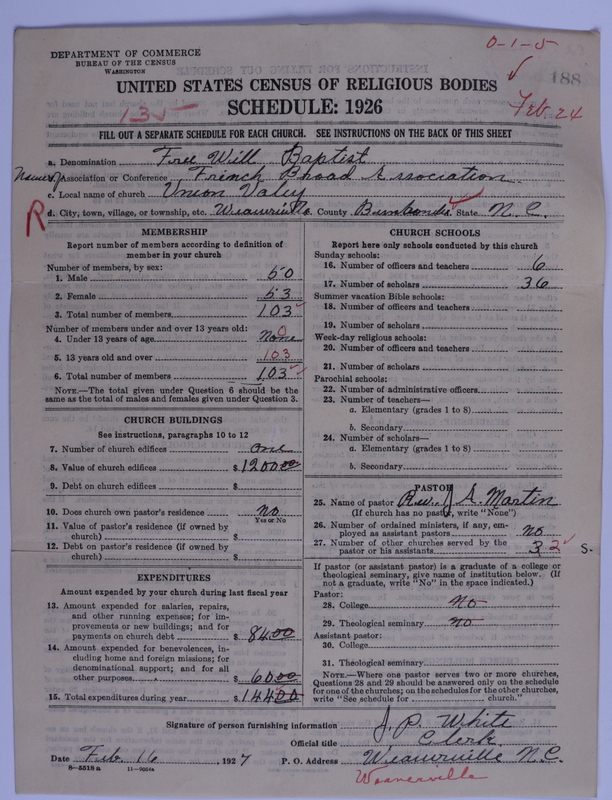 DEPARTMENT OF COMMERCE
BUREAU OF THE CENSUS
WASHINGTON
0-1-5
188
UNITED STATES CENSUS OF RELIGIOUS BODIES
SCHEDULE: 1926
Feb. 24
FILL OUT A SEPARATE SCHEDULE FOR EACH CHURCH. SEE INSTRUCTIONS ON THE BACK OF THIS SHEET
a. Denomination Free Will Baptist
Name of Association or Conference French Broad Association
c. Local name of church Union Valey
R d. City, town, village, or township, etc. County State N. C.
MEMBERSHIP
Report number of members according to definition of
member in your church
Number of members, by sex:
1. Male 50
2. Female 53
3. Total number of members 103
Number of members under and over 13 years old:
4. Under 13 years of age None 0
5. 13 years old and over 103
6. Total number of members 103
NOTE.—The total given under Question 6 should be the
same as the total of males and females given under Question 3.
CHURCH BUILDINGS
See instructions, paragraphs 10 to 12
7. Number of church edifices one
8. Value of church edifices $ 1200.00
9. Debt on church edifices $
10. Does church own pastor's residence no
Yes or No
11. Value of pastor's residence (if owned by
church) $
12. Debt on pastor's residence (if owned by
church) $
EXPENDITURES
Amount expended by your church during last fiscal year
13. Amount expended for salaries, repairs,
and other running expenses; for im-
provements or new buildings; and for
payments on church debt $ 84.00
14. Amount expended for benevolences, in-
cluding home and foreign missions; for
denominational support; and for all
other purposes $ 60.00
15. Total expenditures during year $ 144.00
CHURCH SCHOOLS
Report here only schools conducted by this church
Sunday schools:
16. Number of officers and teachers 6
17. Number of scholars 36
Summer vacation Bible schools:
18. Number of officers and teachers
19. Number of scholars
Week-day religious schools:
20. Number of officers and teachers
21. Number of scholars
Parochial schools:
22. Number of administrative officers
23. Number of teachers—
a. Elementary (grades 1 to 8)
b. Secondary
24. Number of scholars—
a. Elementary (grades 1 to 8)
b. Secondary
PASTOR
25. Name of pastor Rev. J. A. Martin
(If church has no pastor, write "None")
26. Number of ordained ministers, if any, em-
ployed as assistant pastors no
27. Number of other churches served by the
pastor or his assistants 3 2 S.
If pastor (or assistant pastor) is a graduate of a college or
theological seminary, give name of institution below. (If
not a graduate, write "No" in the space indicated.)
Pastor:
28. College no
29. Theological seminary no
Assistant pastor:
30. College
31. Theological seminary
NOTE.—Where one pastor serves two or more churches,
Questions 28 and 29 should be answered only on the schedule
for one of the churches; on the schedules for the other churches,
write "See schedule for church."
Signature of person furnishing information J. P. White
Official title Clerk
Date Feb. 16, 1927 P. O. Address Weaverville N.C.
8—5518 a